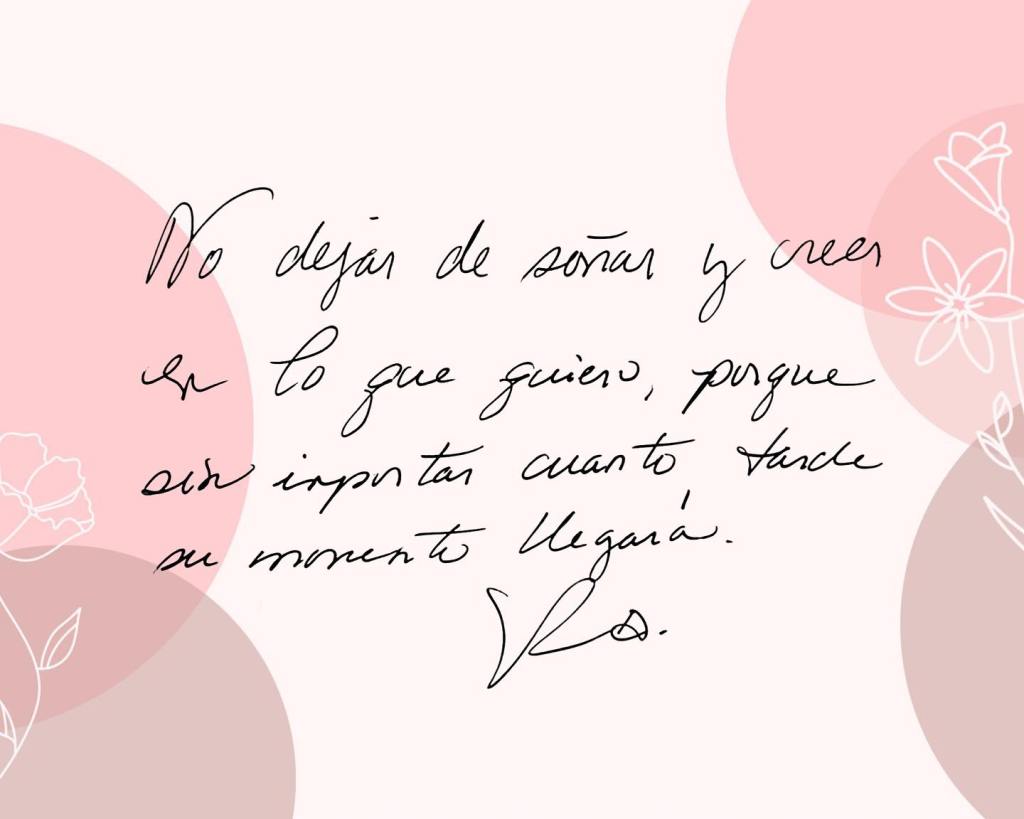 No dejar de soñar y creer
en lo que quiero, porque
sin importar cuanto tarde
su momento llegará.